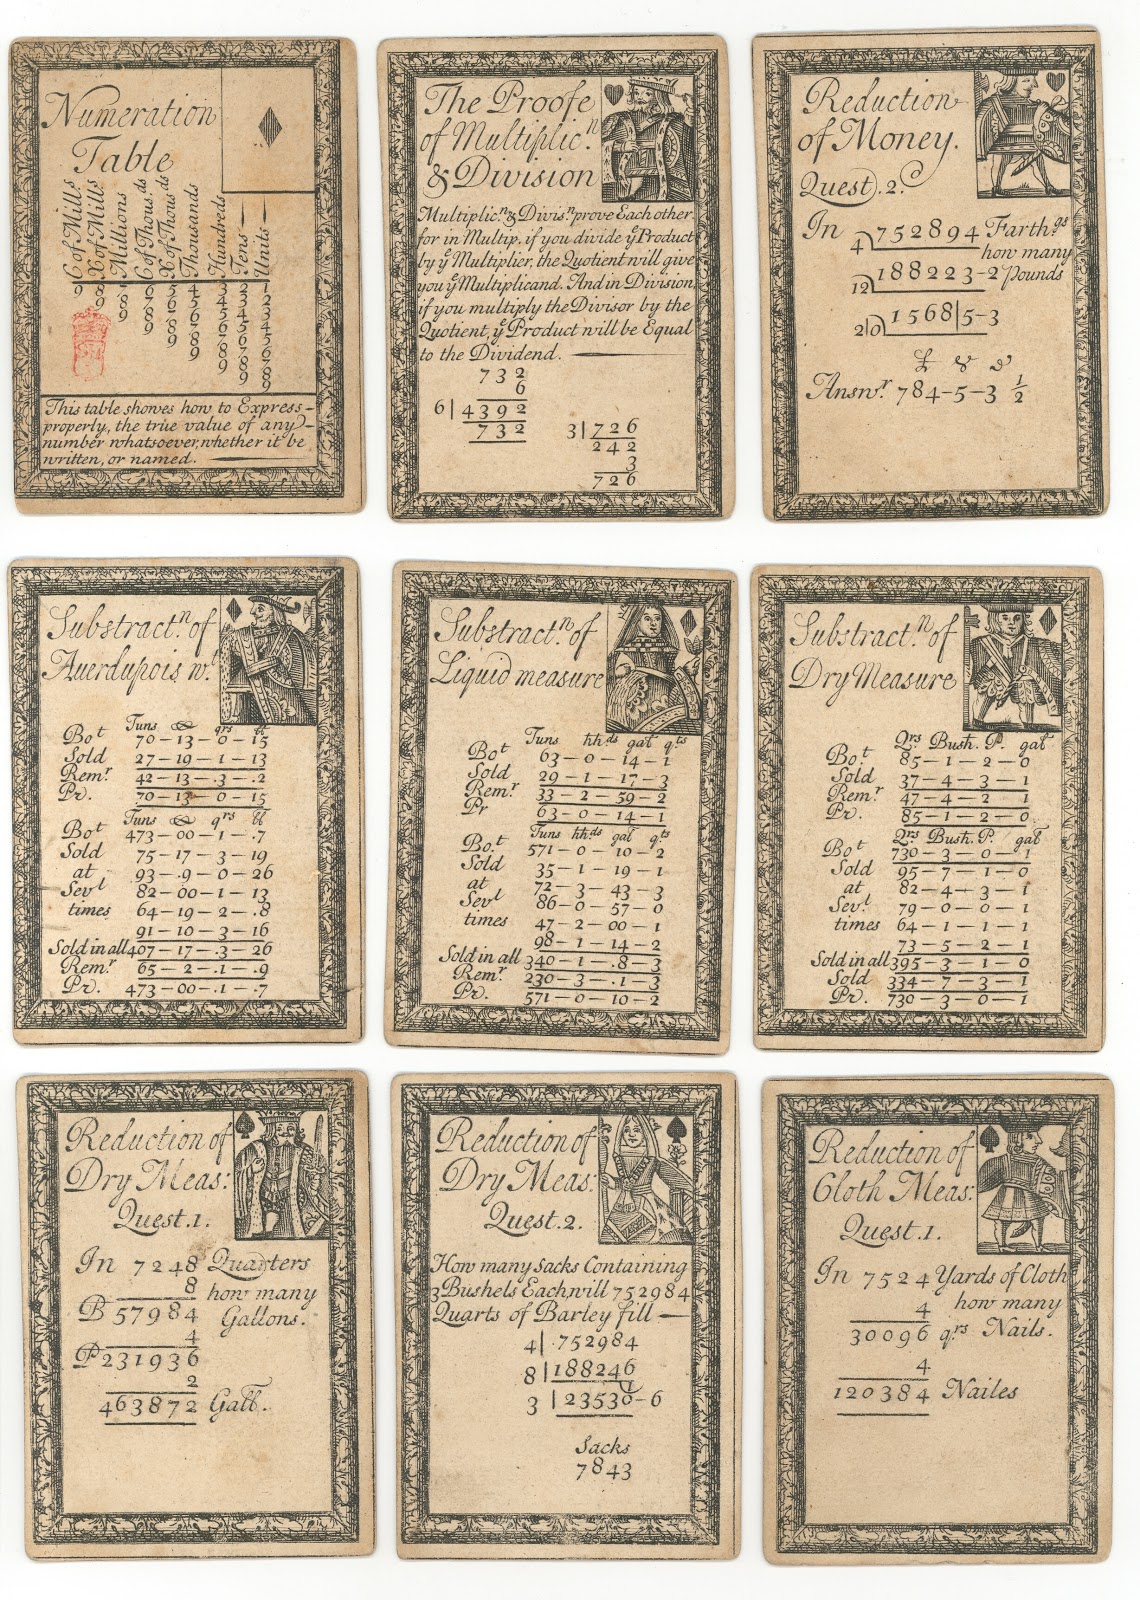 Numeration
Table
C of Mill.s
X of Mills
Millions
C of Thous.ds
X of Thous.ds
Thousands
Hundreds
Tens
Units
9 8 7 6 5 4 3 2 1
9 8 7 6 5 4 3 2
9 8 7 6 5 4 3
9 8 7 6 5 4
9 8 7 6 5
9 8 7 6
9 8 7
9 8
9
This table showes how to Express
properly, the true value of any
number whatsoever, whether it be
written, or named.
The Proofe
of Multiplic.n
& Division
Multiplic.n & Divis.n prove Each other
for in Multip. if you divide ye Product
by ye Multiplier, the Quotient will give
you ye Multiplicand. And in Division,
if you multiply the Divisor by the
Quotient, ye Product will be Equal
to the Dividend.
732
6
6|4392
732
3|726
242
3
726
Reduction
of Money.
Quest.2.
In 4)752894 Farth.gs
how many
12)188223-2 Pounds
2|0)1568|5-3
£ s d
Answ.r 784-5-3 1/2
Substract.n of
Averdupois w.t
Tuns qrs
Bo.t 70-13-0-15
Sold 27-19-1-13
Rem.r 42-13-3-.2
Pr. 70-13-0-15
Tuns qrs
Bot 473-00-1-.7
Sold 75-17-3-19
at 93-.9-0-26
Sev.l 82-00-1-13
times 64-19-2-.8
91-10-3-16
Sold in all 407-17-.3-26
Rem.r 65-2-.1-.9
Pr. 473-00-.1-.7
Substract.n of
Liquid measure
Tuns hh.ds gal q.ts
Bo.t 63-0-14-1
Sold 29-1-17-3
Rem.r 33-2-59-2
Pr 63-0-14-1
Tuns hh.ds gal q.ts
Bo.t 571-0-10-2
Sold 35-1-19-1
at 72-3-43-3
Sev.l 86-0-57-0
times 47-2-00-1
98-1-14-2
Sold in all 340-1-.8-3
Rem.r 230-3-.1-3
Pr. 571-0-10-2
Substract.n of
Dry Measure
Qrs Bush. P. gal
Bo.t 85-1-2-0
Sold 37-4-3-1
Rem.r 47-4-2 1
Pr. 85-1-2-0
Qrs Bush. P. gal
Bo.t 730-3-0-1
Sold 95-7-1-0
at 82-4-3-1
Sev.l 79-0-0-1
times 64-1-1-1
73-5-2-1
Sold in all 395-3-1-0
Sold 334-7-3-1
Pr. 730-3-0-1
Reduction of
Dry Meas:
Quest.1.
In 7248 Quarters
8 how many
B 57984 Gallons.
4
P 231936
2
463872 Gall.
Reduction of
Dry Meas:
Quest.2.
How many Sacks Containing
3 Bushels Each, will 752984
Quarts of Barley fill
4|.752984
8|188246
3|23530-6
Sacks
7843
Reduction of
Cloth Meas:
Quest.1.
In 7524 Yards of Cloth
4 how many
30096 q.rs Nails.
4
120384 Nailes